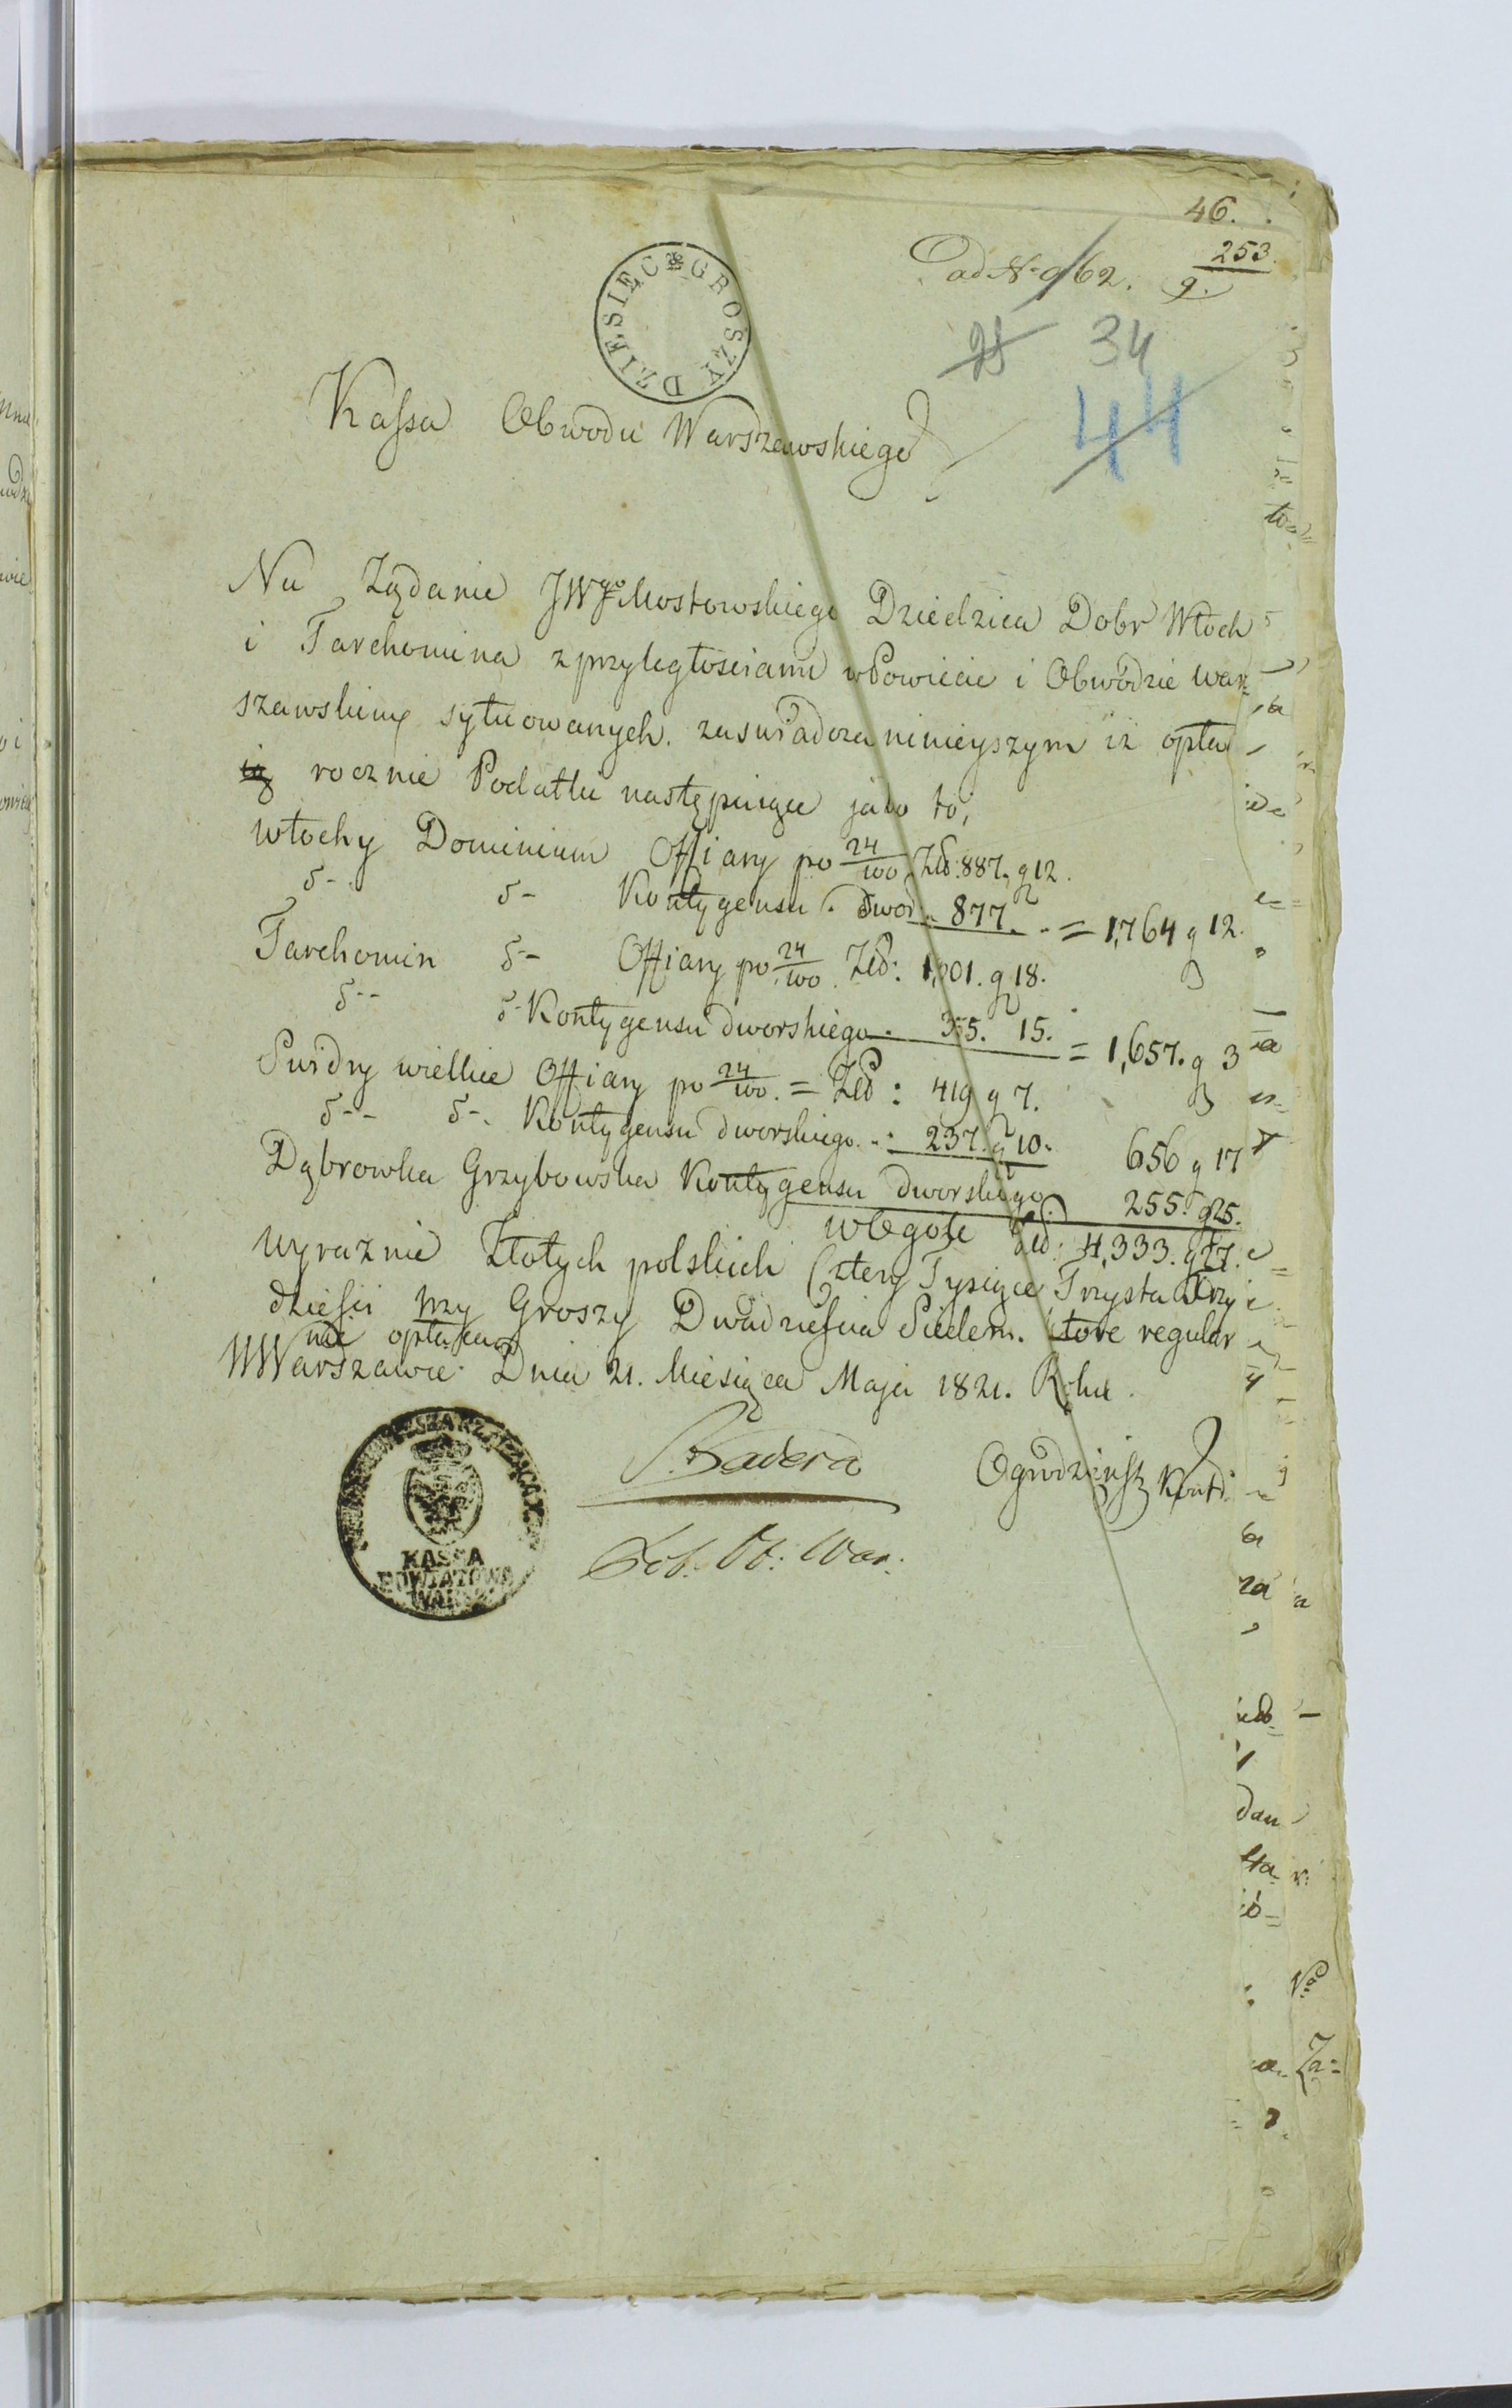 46.
ad N. 962. 253
9.
DZIESIĘC GROSZY
25 34
44
Kassa Obwodu Warszawskiego
Na Żądanie JWgo Mostowskiego Dziedzica Dobr Włoch
i Tarchomina z przyległościami w Powiecie i Obwódzie War=
szawskim sytuowanych. zaświadcza ninieyszym iż opłaca
ią rocznie Podatku następuiące jako to,
Włochy Dominium Offiary po 24/100 Złp: 887. g 12.
d- d- Kontygensu dwor. 877. = 1,764 g 12.
Tarchomin d- Offiary po 24/100 Złp: 1,301. g 18.
d-- d- Kontygensu dworskiego 355. 15. = 1,657. g 3
Swidry wielkie Offiary po 24/100. = Złp: 419 g 7.
d-- d-. Kontygensu dworskiego 237. g 10. 656 g 17
Dąbrowka Grzybowska Kontygensu dworskiego 255. g 25.
w Ogole Złp: 4,333. g 27.
wyraznie Złotych polskich Cztery Tysiące Trzysta Trzy
dzieści trzy Groszy Dwadzieścia Siedem. które regular
nie opłacaią
W Warszawie Dnia 21. Miesiąca Maja 1821. Roku.
Badera Ogrodziński Kontr.
Pob. Ob: War.
KASSA
POWIATOWA
WARSZ